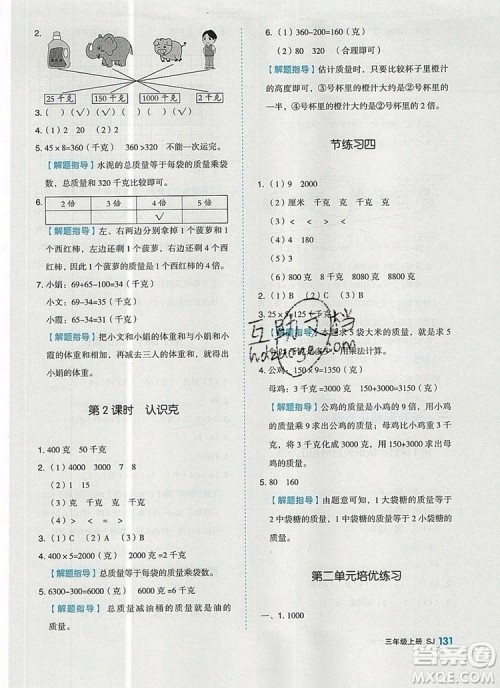 2.
25 千克 150 千克 1000 千克 2 千克
3. ( ) (√) ( ) ( ) (√)
4. (1) (2) > < > < = >
5. 45×8=360 (千克) 320<360 不能一次运完。
【解题指导】水泥的总质量等于每袋的质量乘袋
数。总质量和 320 千克比较即可。
6. 2 倍 3 倍 4 倍 5 倍
√
【解题指导】左、右两边分别拿掉 1 个菠萝和 1
个西红柿，得到 1 个菠萝的质量等于 4 个西红
柿的质量，即 1 个菠萝的质量是 1 个西红柿的
质量的 4 倍。
7. 小娟：69+65-100=34 (千克)
小文：69-34=35 (千克)
小霞：65-34=31 (千克)
【解题指导】把小文和小娟的体重和与小娟和小
霞的体重和相加，再减去三人的体重和，就等
于小娟的体重。
第 2 课时 认识克
1. 400 克 50 千克
2. (1) 4000 3000 7 8
(2) 克 克 千克 千克
3. (1) < > = > < >
(2) ② ① ④ ③
4. 400×5=2000 (克) 2000 克=2 千克
【解题指导】总质量等于每袋的质量乘袋数。
5. 6300-300=6000 (克) 6000 克=6 千克
【解题指导】总质量减油桶的质量就等于油的
质量。
6. (1) 360-200=160 (克)
(2) 80 40 320 (合理即可)
【解题指导】估计质量时，只要比较杯子里橙汁
的高度即可，③号杯里的橙汁大约是②号杯里
的一半，④号杯里的橙汁大约是①号杯里的 2 倍。
节练习四
1. (1) 9 2000
(2) 厘米 千克 克 克 千克
(3) <
(4) 30
(5) 400
(6) 8000 800 8 800 克 8 千克
2. (1) ② (2) ① (3) ② (4) ①
3. 25×5=125 (千克)
【解题指导】求 5 袋大米的总质量就是求 5
个 25 千克是多少千克，用乘法计算。
4. 公鸡：150×9=1350 (克)
母鸡：3 千克=3000 克 150+3000=3150 (克)
【解题指导】公鸡的质量是小鸡的 9 倍，用小鸡
的质量乘 9，得到公鸡的质量；母鸡比小鸡重 3
千克，将 3 千克化成 3000 克，用 3000 克加上小
鸡的质量得到母鸡的质量。
5. 80 160
【解题指导】由题意可知，1 大袋糖的质量等于
2 中袋糖的质量，1 中袋糖的质量等于 2 小袋糖
的质量。
第二单元培优练习
一、1. 1000
三年级上册 SJ 131
互助文档
hdzuoye.com
作业帮
MXQE.COM